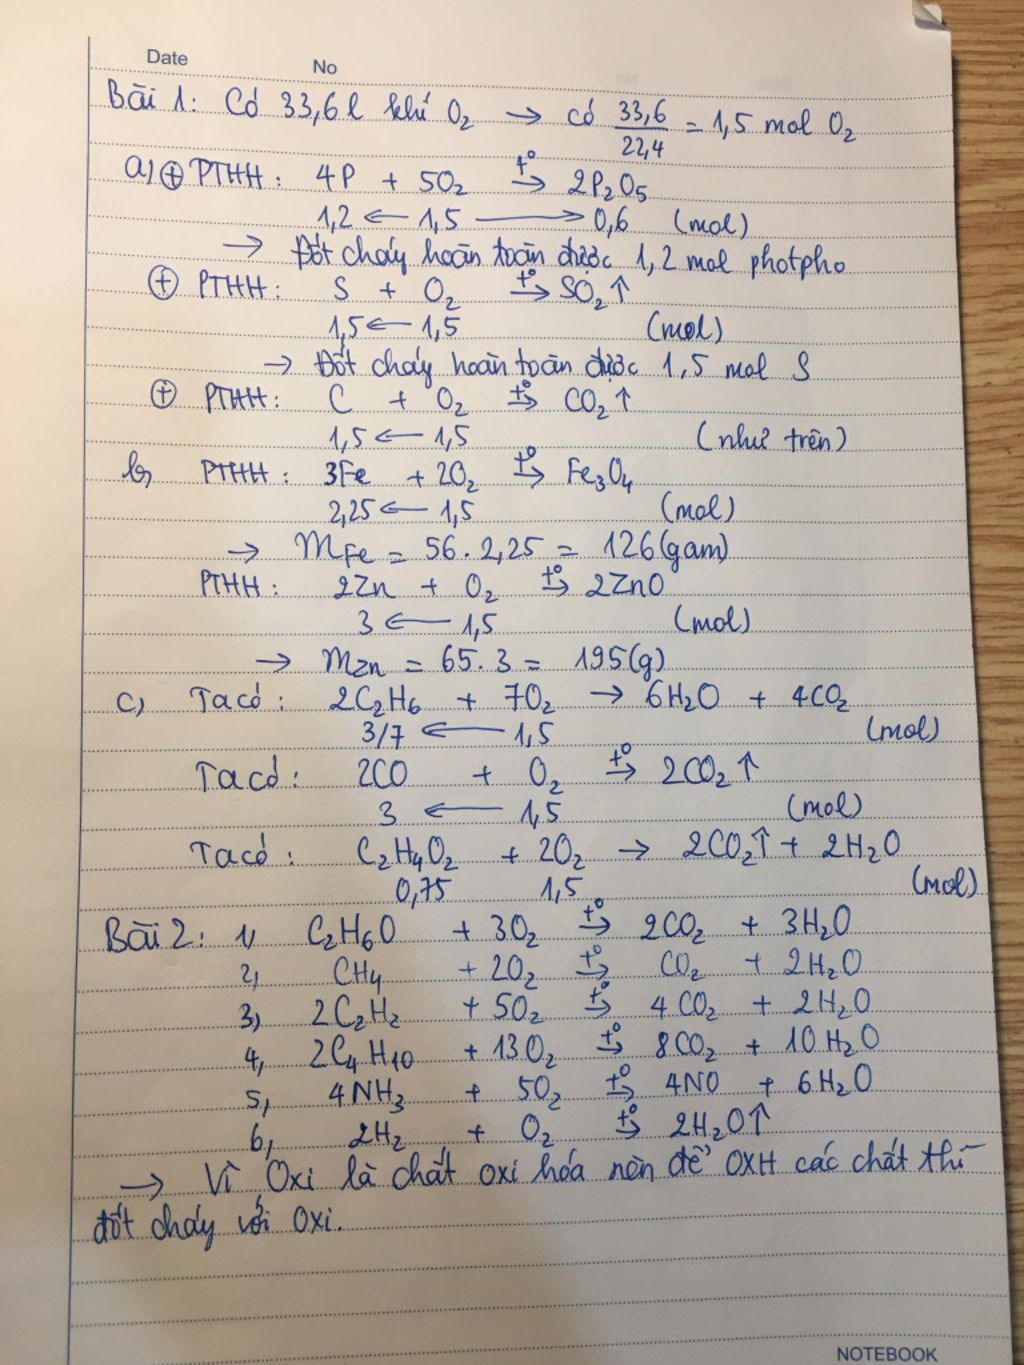 Date No
Bài 1: Có 33,6 l khí O₂ → có 33,6/22,4 = 1,5 mol O₂
a) ⊕ PTHH: 4P + 5O₂ t°→ 2P₂O₅
1,2 ← 1,5 → 0,6 (mol)
→ Đốt cháy hoàn toàn được 1,2 mol photpho
⊕ PTHH: S + O₂ t°→ SO₂↑
1,5 ← 1,5 (mol)
→ Đốt cháy hoàn toàn được 1,5 mol S
⊕ PTHH: C + O₂ t°→ CO₂↑
1,5 ← 1,5 (như trên)
b) PTHH: 3Fe + 2O₂ t°→ Fe₃O₄
2,25 ← 1,5 (mol)
→ mFe = 56 . 2,25 = 126 (gam)
PTHH: 2Zn + O₂ t°→ 2ZnO
3 ← 1,5 (mol)
→ mZn = 65 . 3 = 195 (g)
c) Ta có: 2C₂H₆ + 7O₂ → 6H₂O + 4CO₂
3/7 ← 1,5 (mol)
Ta có: 2CO + O₂ t°→ 2CO₂↑
3 ← 1,5 (mol)
Ta có: C₂H₄O₂ + 2O₂ → 2CO₂↑ + 2H₂O
0,75 1,5 (mol)
Bài 2: 1, C₂H₆O + 3O₂ t°→ 2CO₂ + 3H₂O
2, CH₄ + 2O₂ t°→ CO₂ + 2H₂O
3, 2C₂H₂ + 5O₂ t°→ 4CO₂ + 2H₂O
4, 2C₄H₁₀ + 13O₂ t°→ 8CO₂ + 10H₂O
5, 4NH₃ + 5O₂ t°→ 4NO + 6H₂O
6, 2H₂ + O₂ t°→ 2H₂O↑
→ Vì Oxi là chất oxi hóa nên để OXH các chất thì
đốt cháy với Oxi.
NOTEBOOK